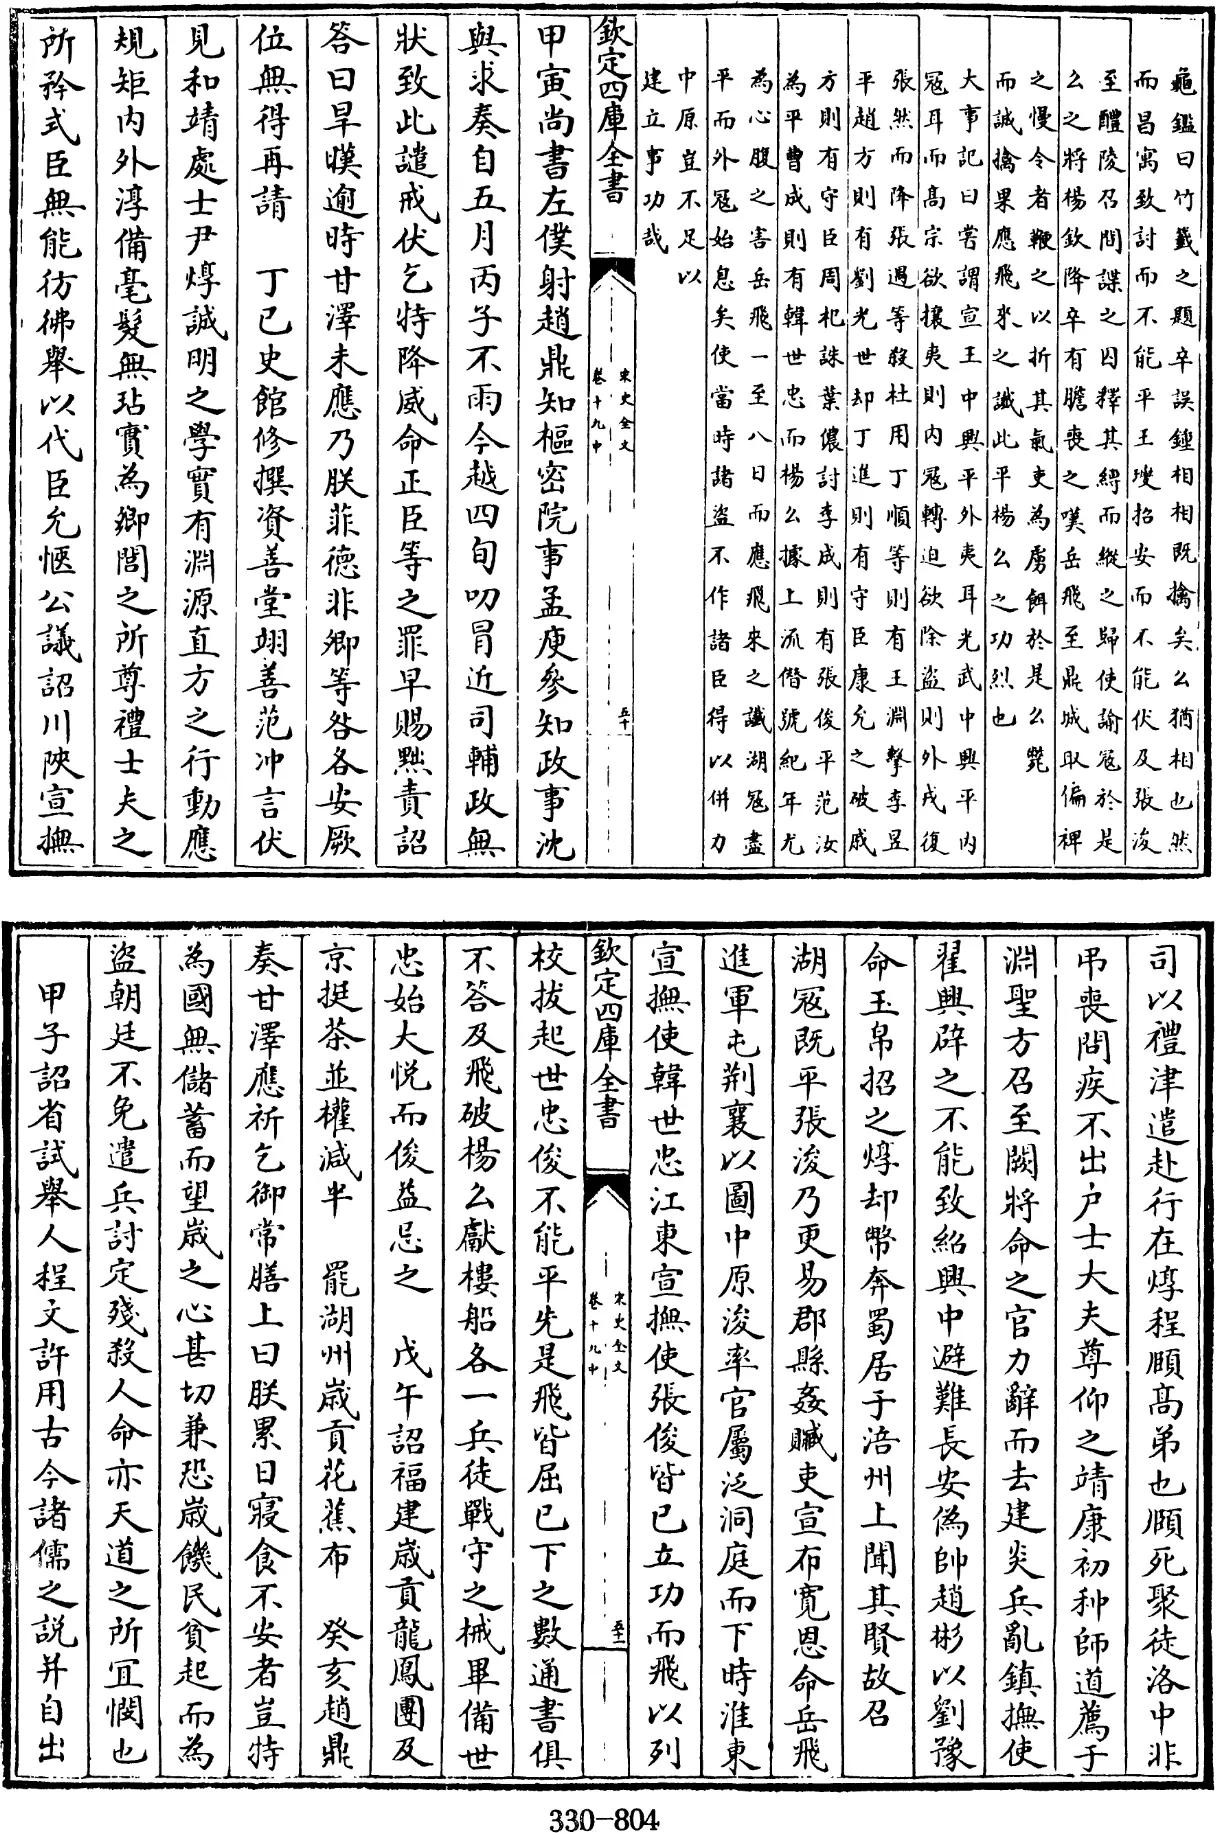 龜鑑曰竹籤之題卒誤鍾相相既擒矣么猶相也然
而昌寓致討而不能平王𤫉招安而不能伏及張浚
至醴陵召問諜之囚釋其縛而縱之歸使諭冦於是
么之將楊欽降卒有膽喪之嘆岳飛至鼎城取偏裨
之慢令者鞭之以折其氣吏為虜餌於是么斃
而誠擒果應飛來之讖此平楊么之功烈也
大事記曰甞謂宣王中興平外夷耳光武中興平内
冦耳而髙宗欲攘夷則内冦轉迫欲除盗則外戎復
張然而降張遇等殺杜用丁順等則有王淵擊李昱
平趙方則有劉光世却丁進則有守臣康允之破戚
方則有守臣周杞誅葉儂討李成則有張俊平范汝
為平曹成則有韓世忠而楊么據上流僭號紀年尤
為心腹之害岳飛一至八日而應飛來之讖湖冦盡
平而外冦始息矣使當時諸盗不作諸臣得以併力
中原豈不足以
建立事功哉
欽定四庫全書
宋史全文
卷十九中
五十
甲寅尚書左僕射趙鼎知樞密院事孟庾參知政事沈
與求奏自五月丙子不雨今越四旬叨冒近司輔政無
狀致此譴戒伏乞特降威命正臣等之罪早賜黜責詔
答曰旱暵逾時甘澤未應乃朕菲德非卿等咎各安厥
位無得再請　丁巳史館修撰資善堂翊善范冲言伏
見和靖處士尹焞誠明之學實有淵源直方之行動應
規矩内外淳備毫髮無玷實為鄉閭之所尊禮士夫之
所矜式臣無能彷彿舉以代臣允愜公議詔川陜宣撫
司以禮津遣赴行在焞程頤髙弟也頤死聚徒洛中非
弔喪問疾不出户士大夫尊仰之靖康初种師道薦于
淵聖方召至闕將命之官力辭而去建炎兵亂鎮撫使
翟興辟之不能致紹興中避難長安偽帥趙彬以劉豫
命玉帛招之焞却幣奔蜀居于涪州上聞其賢故召
湖冦既平張浚乃更易郡縣姦贓吏宣布寛恩命岳飛
進軍屯荆襄以圖中原浚率官屬泛洞庭而下時淮東
宣撫使韓世忠江東宣撫使張俊皆已立功而飛以列
欽定四庫全書
宋史全文
卷十九中
五十一
校拔起世忠俊不能平先是飛皆屈已下之數通書俱
不答及飛破楊么獻樓船各一兵徒戰守之械畢備世
忠始大悦而俊益忌之　戊午詔福建歳貢龍鳳團及
京挺茶並權減半　罷湖州歳貢花蕉布　癸亥趙鼎
奏甘澤應祈乞御常膳上曰朕累日寢食不安者豈特
為國無儲蓄而望歳之心甚切兼恐歳饑民貧起而為
盗朝廷不免遣兵討定殘殺人命亦天道之所宜憫也
甲子詔省試舉人程文許用古今諸儒之説并自出
330-804